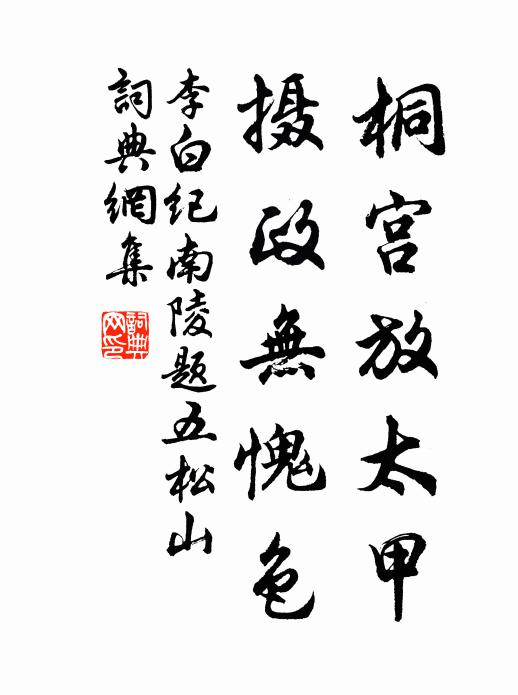 桐宫放太甲
摄政無愧色
李白纪南陵题五松山
詞典網集
詞典网印